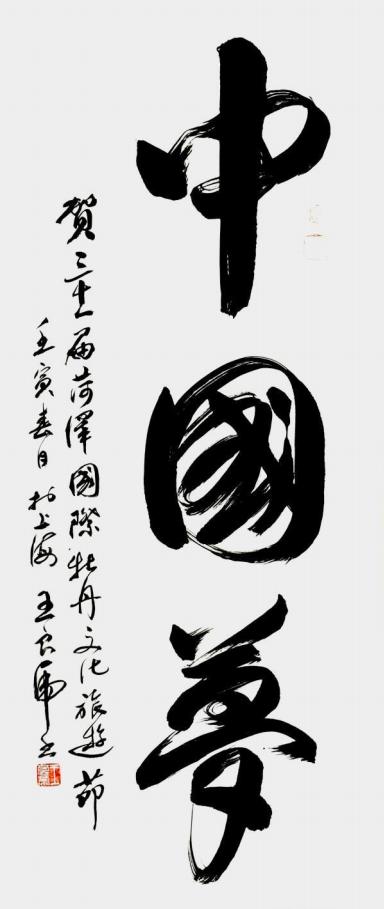 中國夢
賀三十一届菏澤國際牡丹文化旅遊節
壬寅春日於上海王良虎书